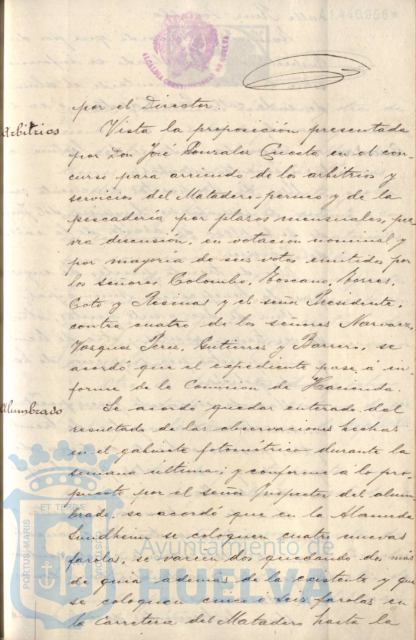 por el Director.
Arbitrios Vista la proposición presentada
por Don José González Cuesta en el con-
curso para arriendo de los arbitrios y
servicios del Matadero permeo y de la
pescadería por plazos mensuales, pre-
via discusión, en votación nominal y
por mayoría de seis votos emitidos por
los señores, Colombo, Toscano, Torres,
Coto y Resina y el señor Presidente,
contra cuatro de los señores Narvaez,
Vazquez Perez, Gutierrez y Barrero, se
acordó que el expediente pase á in-
forme de la Comisión de Hacienda.
Alumbrado Se acordó quedar enterado del
resultado de las observaciones hechas
en el gabinete fotométrico durante la
semana ultima; y conforme a lo pro-
puesto por el señor Inspector del alum-
brado se acordó que en la Alameda
Sundheim se coloquen cuatro nuevas
farolas, se varien dos quedando dos más
de guia ademas de la existente y que
se coloquen cinco o seis farolas en
la Carretera del Matadero hasta la
PORTUS MARIS
ET TERRAE
Ayuntamiento de
HUELVA